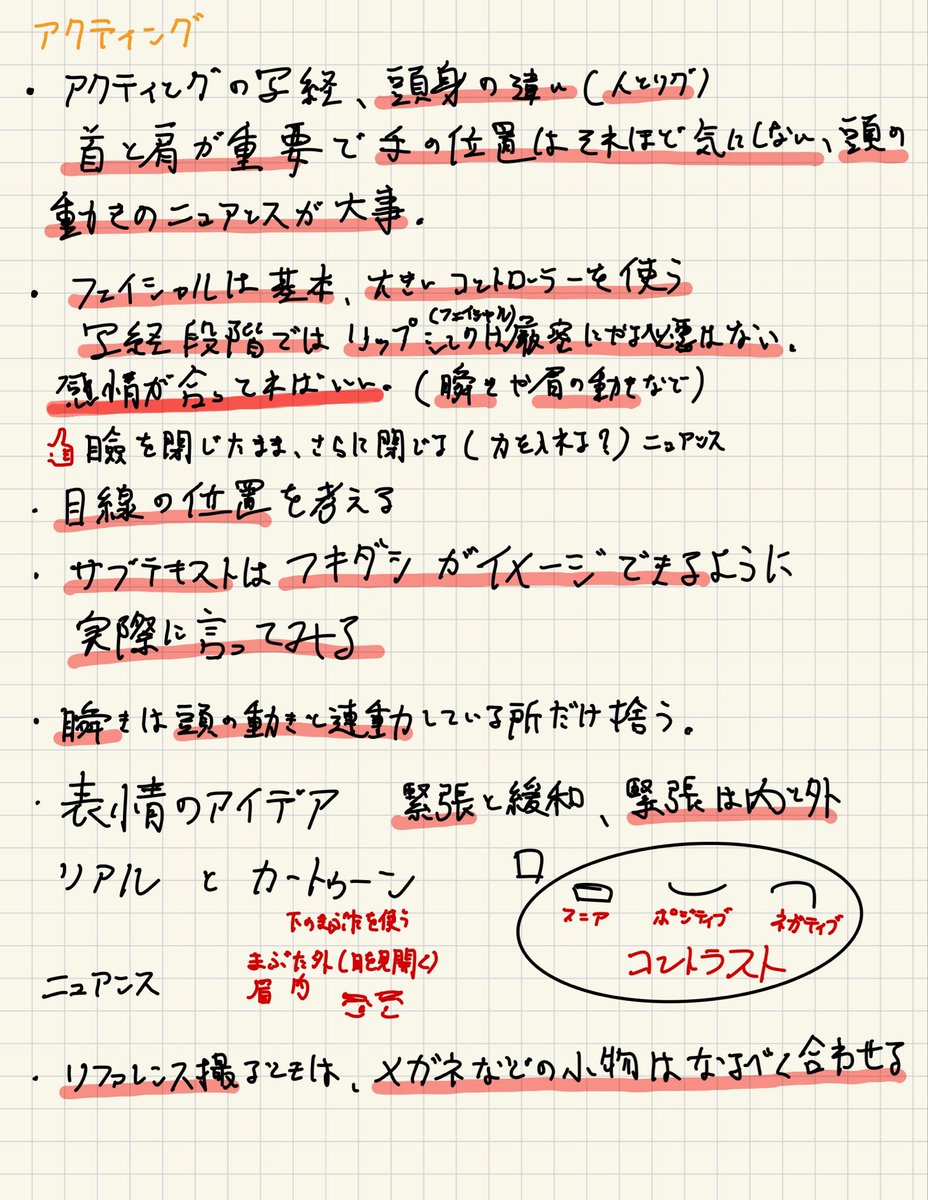 アクティング
・アクティングの写経、頭身の違い(人とリグ)
首と肩が重要で手の位置はそれほど気にしない、頭の
動きのニュアンスが大事.
・フェイシャルは基本、大きいコントローラーを使う
(フェイシャル)
写経段階ではリップシンクは厳密にやる必要はない.
感情が合ってればいい。(瞬きや眉の動きなど)
瞼を閉じたまま、さらに閉じる(力を入れる?)ニュアンス
・目線の位置を考える
・サブテキストはフキダシがイメージできるように
実際に言ってみる
・瞬きは頭の動きと連動している所だけ拾う。
・表情のアイデア 緊張と緩和、緊張は内と外
リアル と カートゥーン
下のまぶたを使う
まぶた外(目を見開く)
眉 内
ニュアンス
口
ポジティブ
ネガティブ
コントラスト
・リファレンス撮るときは、メガネなどの小物はなるべく合わせる